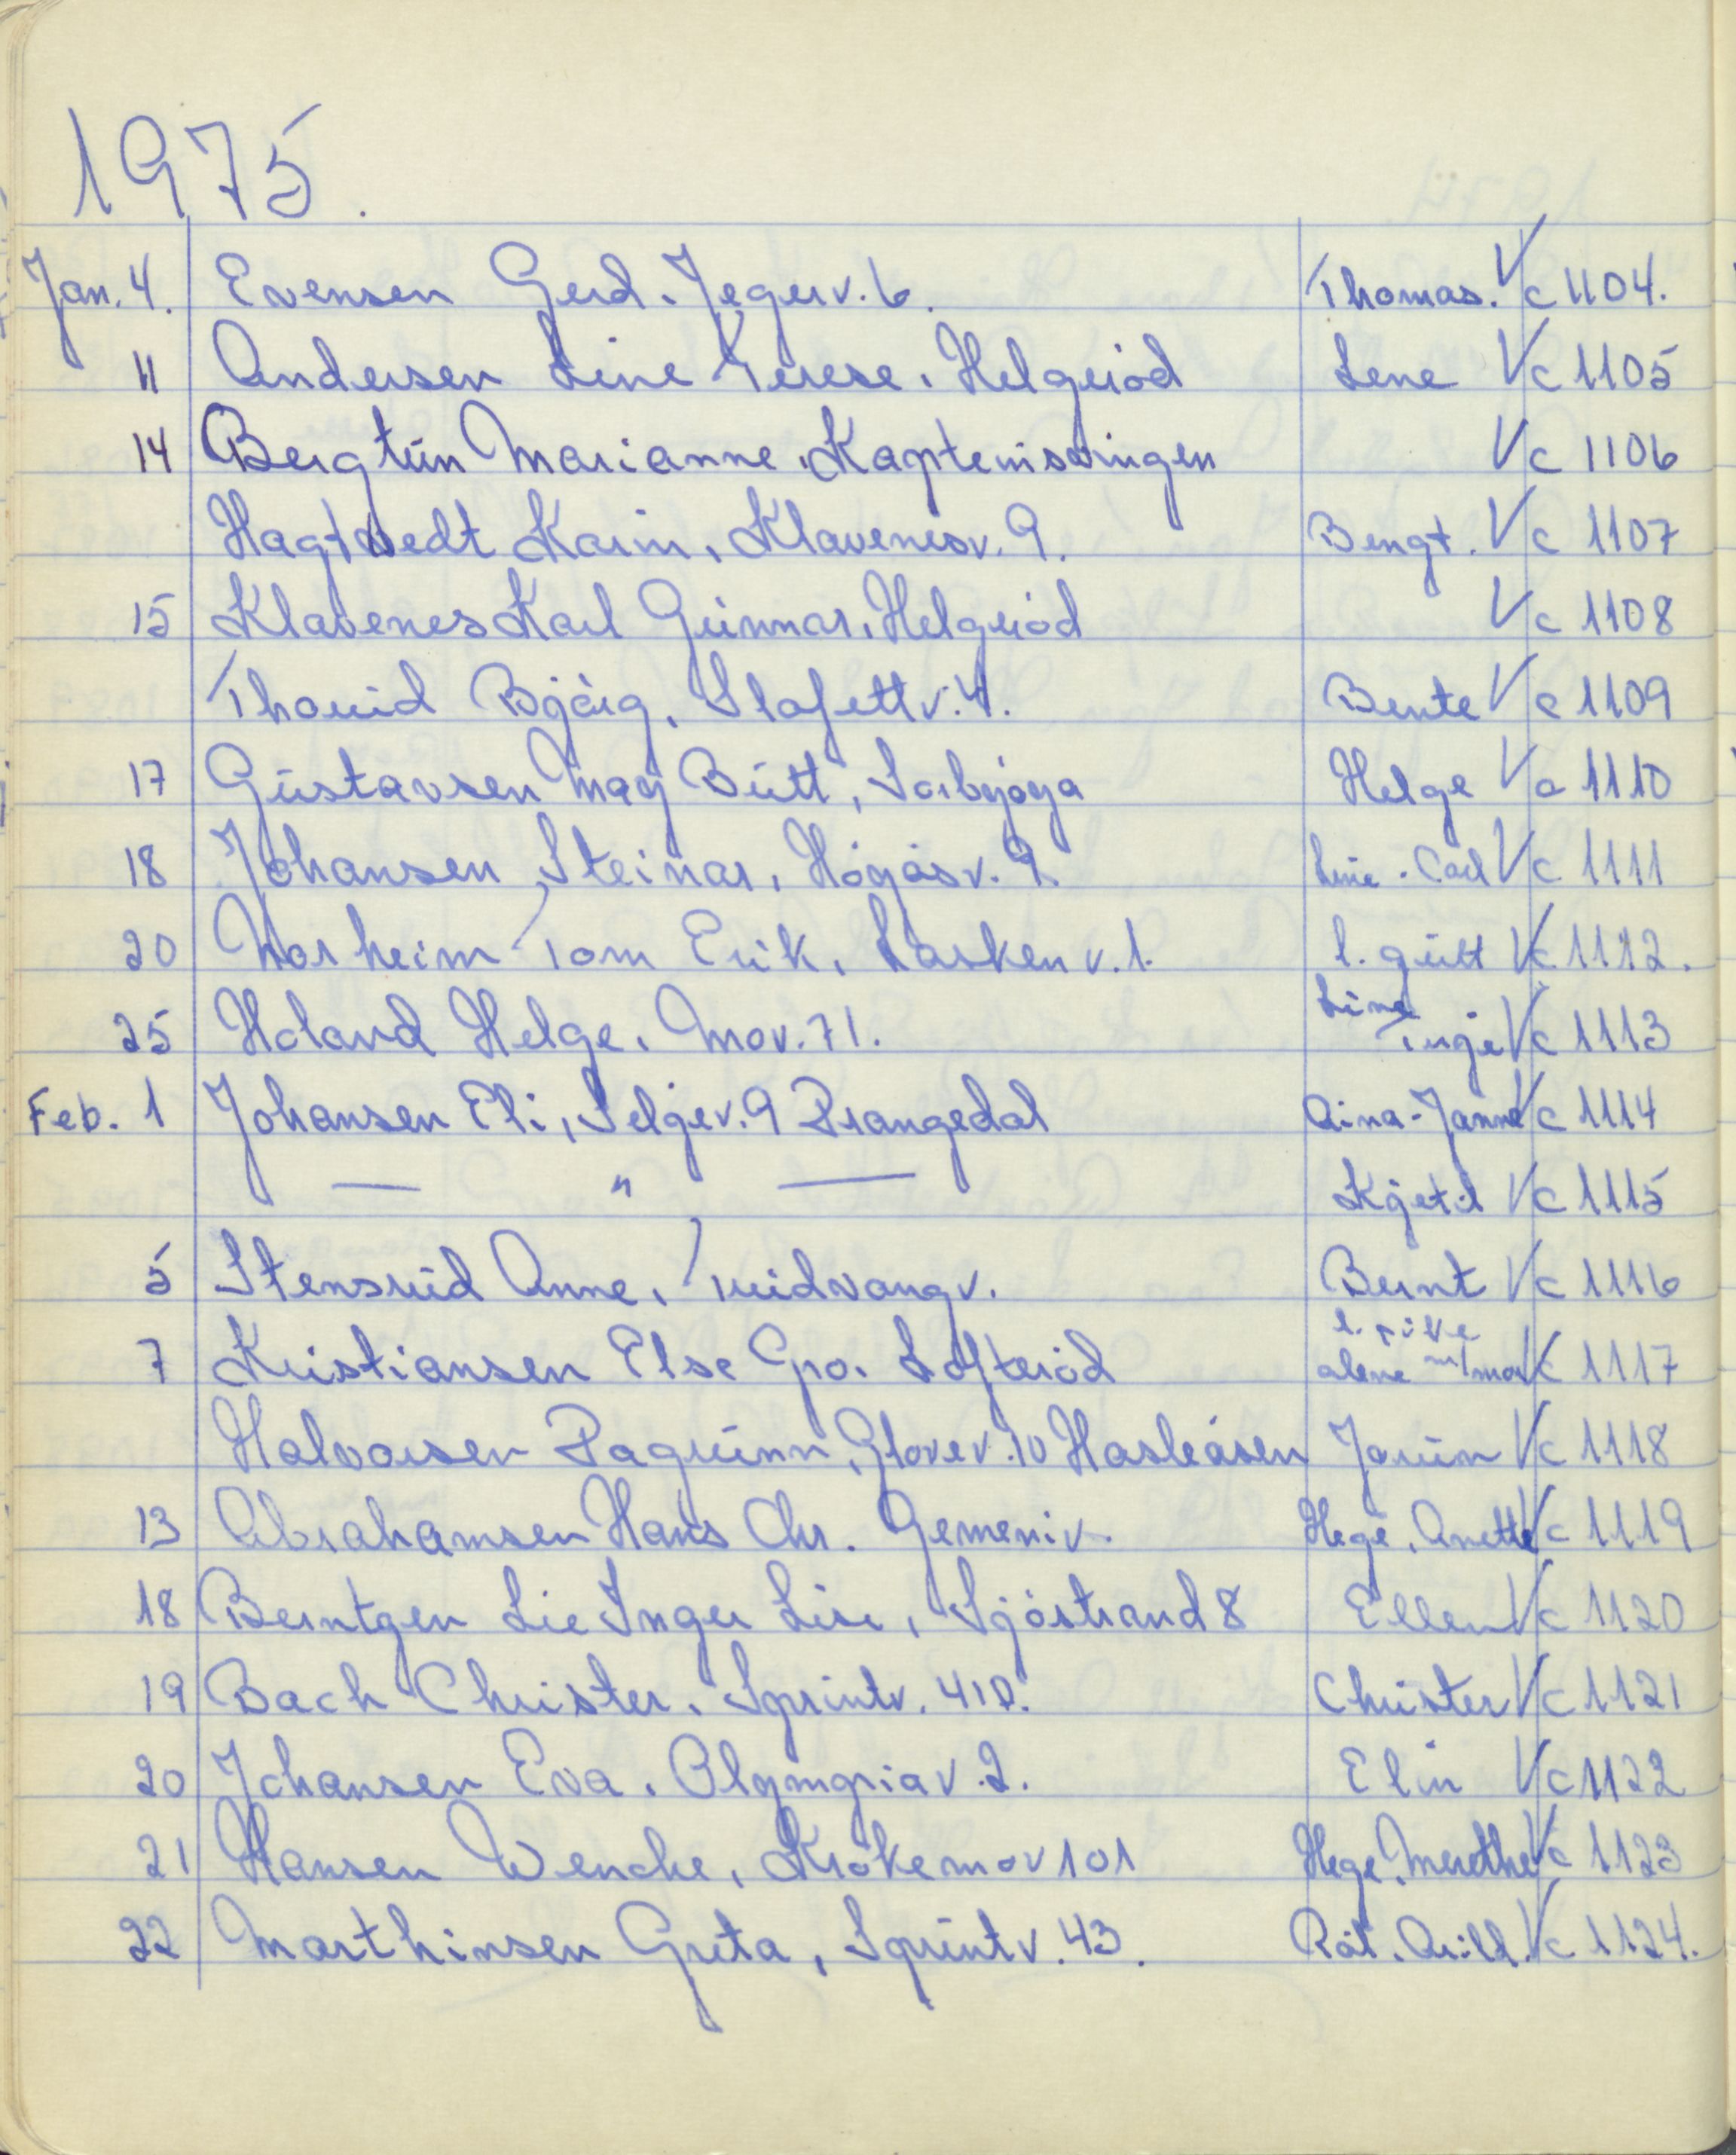 1975.
Jan. 4. Evensen Gerd. Jegerv. 6. Thomas. V c 1104.
11 Andersen Line Terese. Helgeröd Lene V c 1105
14 Bergtun Marianne. Kapteinssvingen V c 1106
Hagtvedt Karin. Klavenesv. 9. Bengt. V c 1107
15 Klavenes Karl Gunnar. Helgeröd V c 1108
Thorrid Bjørg. Stafettv. 4. Bente V c 1109
17 Gustavsen May Britt, Sørbyøya Helge V c 1110
18 Johansen Steinar, Högåsv. 9. Line. Carl V c 1111
20 Norheim Tom Erik. Lasken v. 1. l. gutt V c 1112.
25 Holand Helge. Mov. 71. Line Terje V c 1113
Feb. 1 Johansen Eli, Selgev. 9 Prangedal Aina-Janne V c 1114
— " — Kjetil V c 1115
5 Stensrud Anne. Tuidvangv. Bernt V c 1116
7 Kristiansen Else Gro. Lofteröd l. pike alene m/mor V c 1117
Halvorsen Dagrunn, Glovev. 10 Hasleåsen Jorunn V c 1118
13 Abrahamsen Hans Chr. Gemeniv. Hege. Anette V c 1119
18 Berntzen Lie Inger Lise, Sjöstrand 8 Ellen V c 1120
19 Bach Christer. Sprintv. 41D. Christer V c 1121
20 Johansen Eva. Olympiav. 2. Elin V c 1122
21 Hansen Wenche, Krokemov 101 Hege. Merethe V c 1123
22 Marthinsen Greta, Sprintv. 43. Pål. Arild. V c 1124.